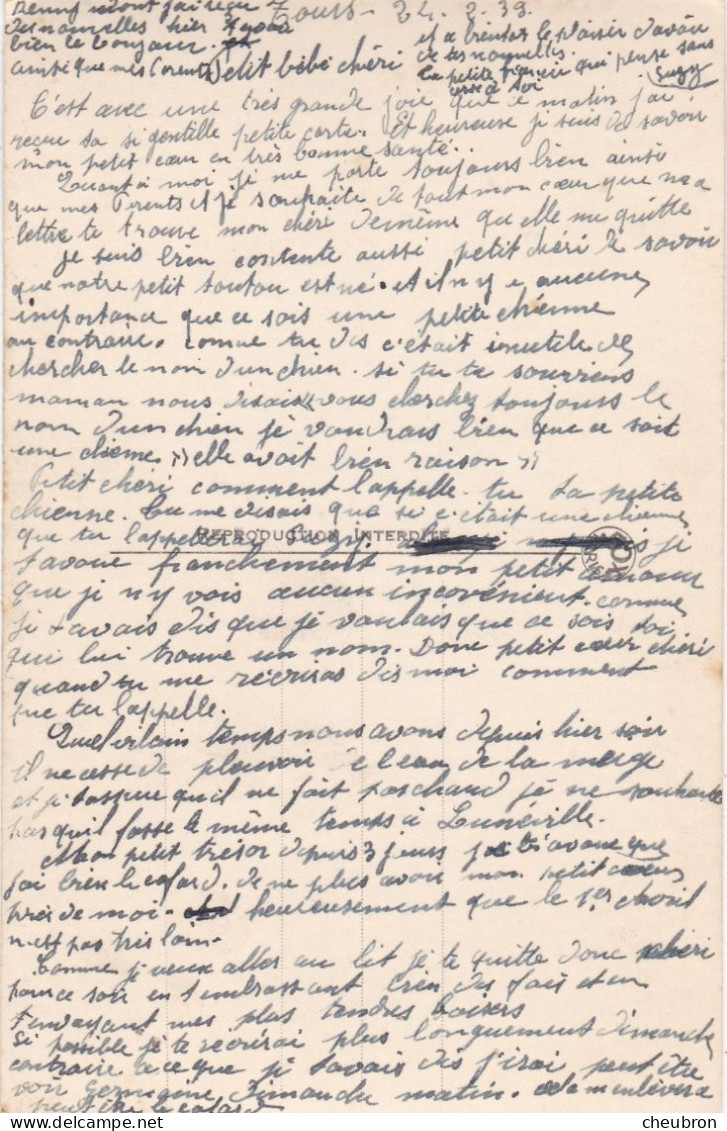 Tours - 24. 2. 39
des nouvelles hier
bien le bonjour
ainsi que mes Parents
et à bientôt le plaisir d'avoir
de tes nouvelles.
ta petite qui pense sans
cesse à toi
Suzy
Petit bébé chéri
C'est avec une très grande joie que ce matin j'ai
reçu ta si gentille petite carte. Et heureuse je suis de savoir
mon petit cœur en très bonne santé..
Quant à moi je me porte toujours bien ainsi
que mes Parents et je souhaite de tout mon cœur que ma
lettre te trouve mon chéri de même qu'elle me quitte
Je suis bien contente aussi petit chéri de savoir
que notre petit toutou est né. et il n'y a aucune
importance que ce sois une petite chienne
au contraire. comme tu dis c'était inutile de
chercher le nom d'un chien. si tu te souviens
maman nous disais « vous cherchez toujours le
nom d'un chien je voudrais bien que ce soit
une chienne » elle avait bien raison »
Petit chéri comment l'appelle-tu ta petite
chienne. Tu me disais que si c'était une chienne
que tu l'appellerais Suzy. je
REPRODUCTION INTERDITE
t'avoue franchement mon petit amour
que je n'y vois aucun inconvénient. comme
je t'avais dis que je voulais que ce sois toi
qui lui trouve un nom. Donc petit cœur chéri
quand tu me récriras dis moi comment
que tu l'appelle.
Quel vilain temps nous avons depuis hier soir
il ne cesse de pleuvoir de l'eau de la neige
et je t'assure qu'il ne fait pas chaud je ne souhaite
pas qu'il fasse le même temps à Lunéville.
Mon petit trésor depuis 3 jours je t'avoue que
j'ai bien le cafard. de ne plus avoir mon petit cœur
près de moi. heureusement que le 1er Avril
n'est pas très loin.
Comme je veux aller au lit je te quitte donc chéri
pour ce soir en t'embrassant bien des fois et en
t'envoyant mes plus tendres baisers
Si possible je te récrirai plus longuement dimanche
contraire à ce que je t'avais dis j'irai peut être
voir Germaine dimanche matin. cela m'enlèvera
peut être le cafard
cheubron